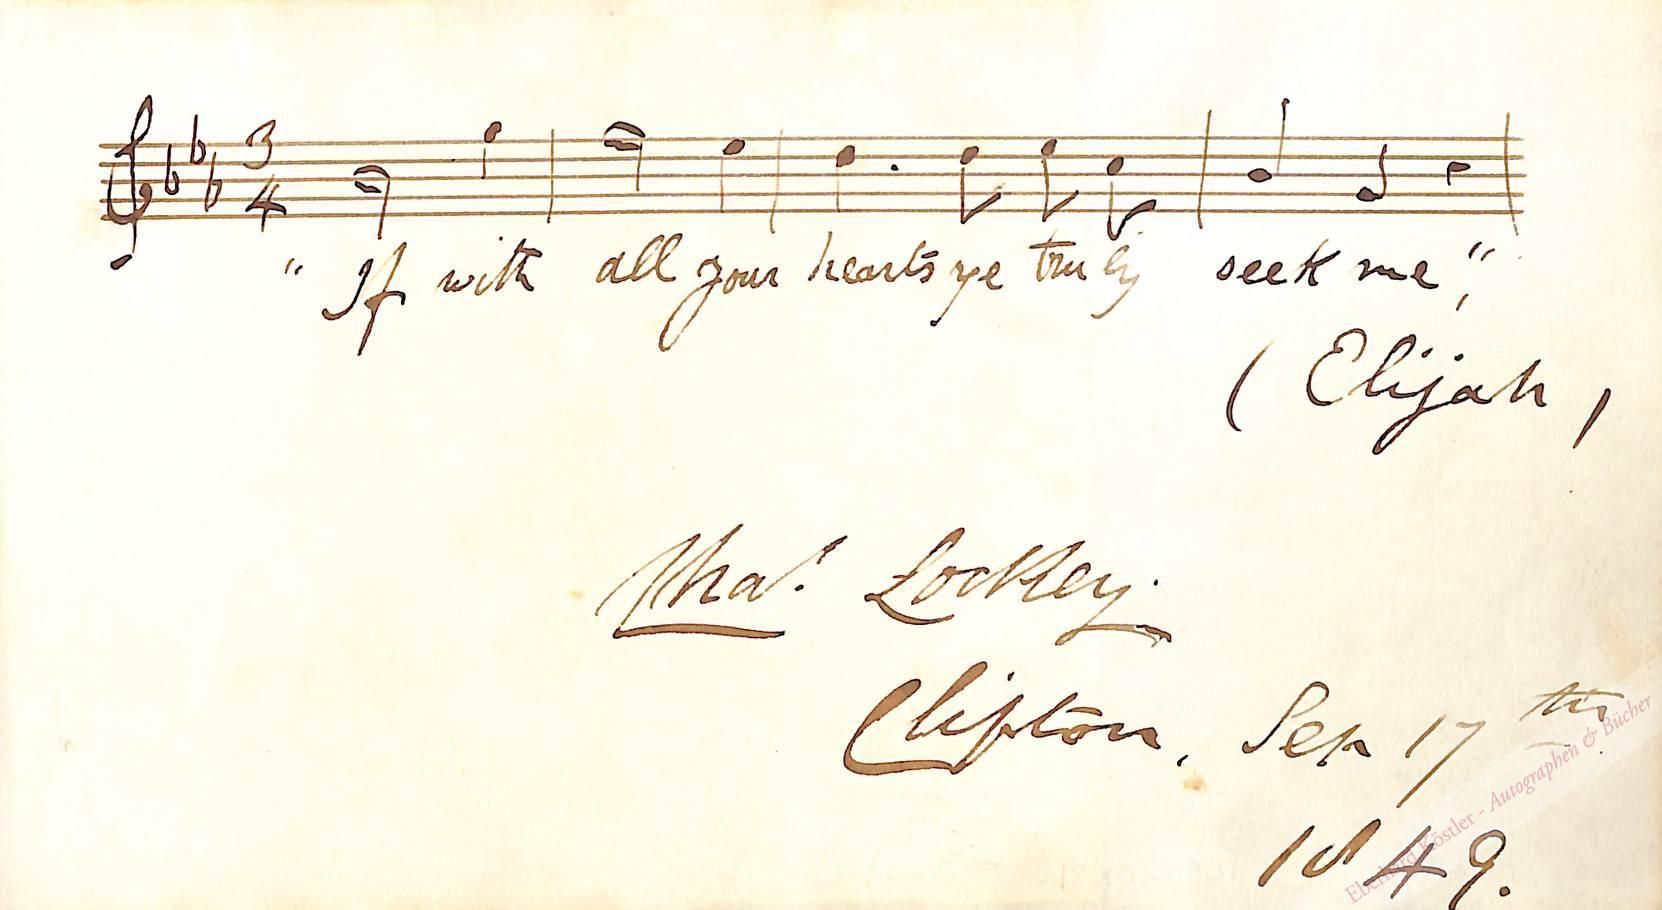 3
4
" If with all your hearts ye truly seek me,"
(Elijah)
Thos. Lockey.
Clifton, Sep 17th
1849.
Eberhard Köstler - Autographen & Bücher